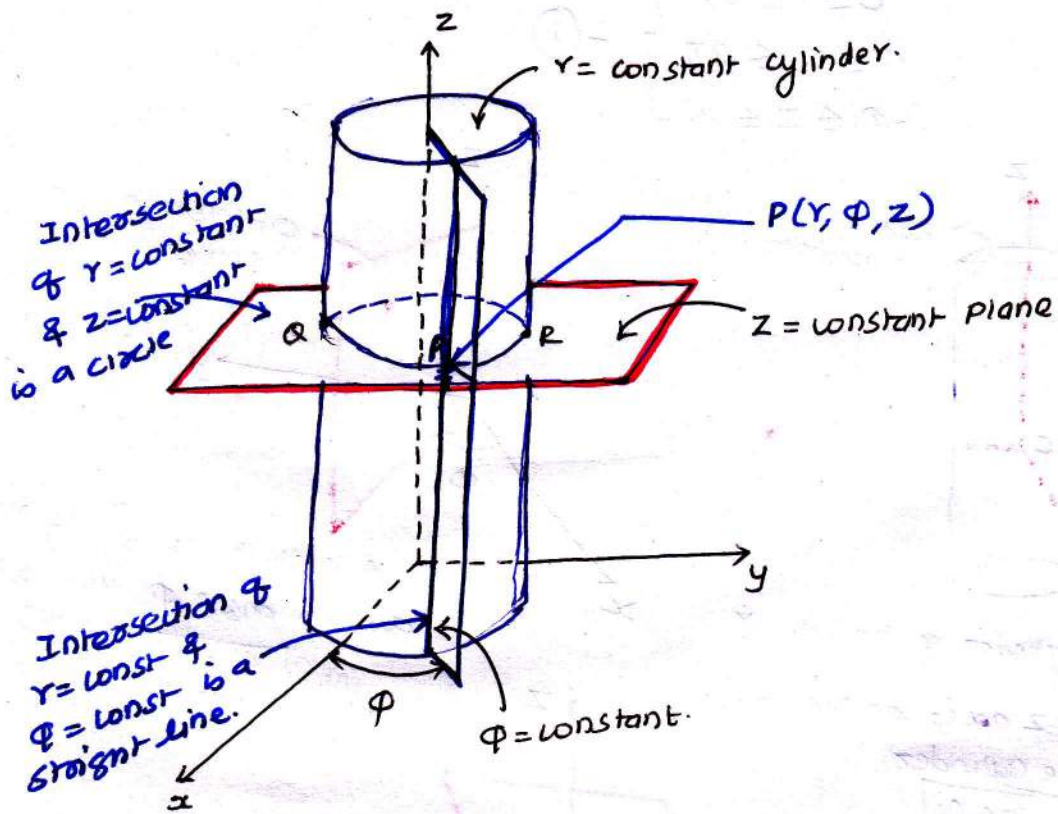 z
r = constant cylinder.
Intersection
of r = constant
& z = constant
is a circle
P(r, φ, z)
Q
P
R
z = constant plane
y
Intersection of
r = const &
φ = const is a
straignt line.
φ
φ = constant.
x